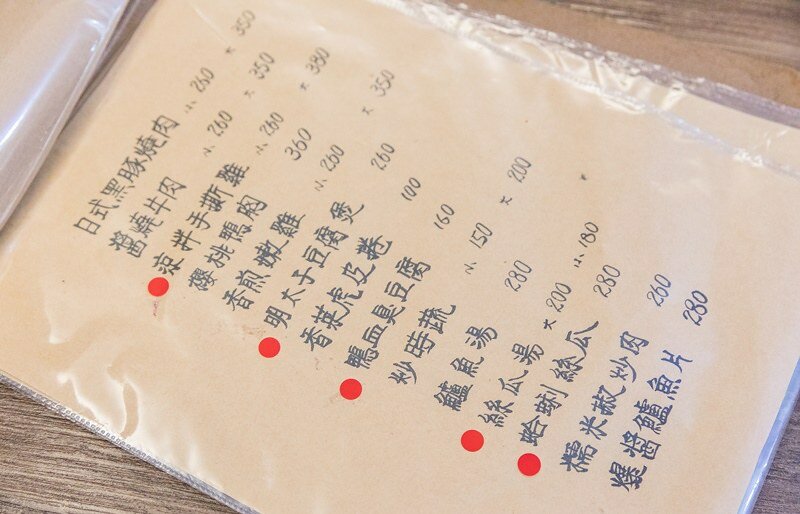 日式黑豚燒肉 小260 大350
醬燒牛肉 小260 大350
涼拌手撕雞 小260 大380
櫻桃鴨胸 360
香煎嫩雞 小260 大350
明太子豆腐煲 260
香菜虎皮卷 100
鴨血臭豆腐 160
炒時蔬 小150 大200
鱸魚湯 280
絲瓜湯 大200 小180
蛤蜊絲瓜 280
糯米椒炒肉 260
爆醬鱸魚片 280